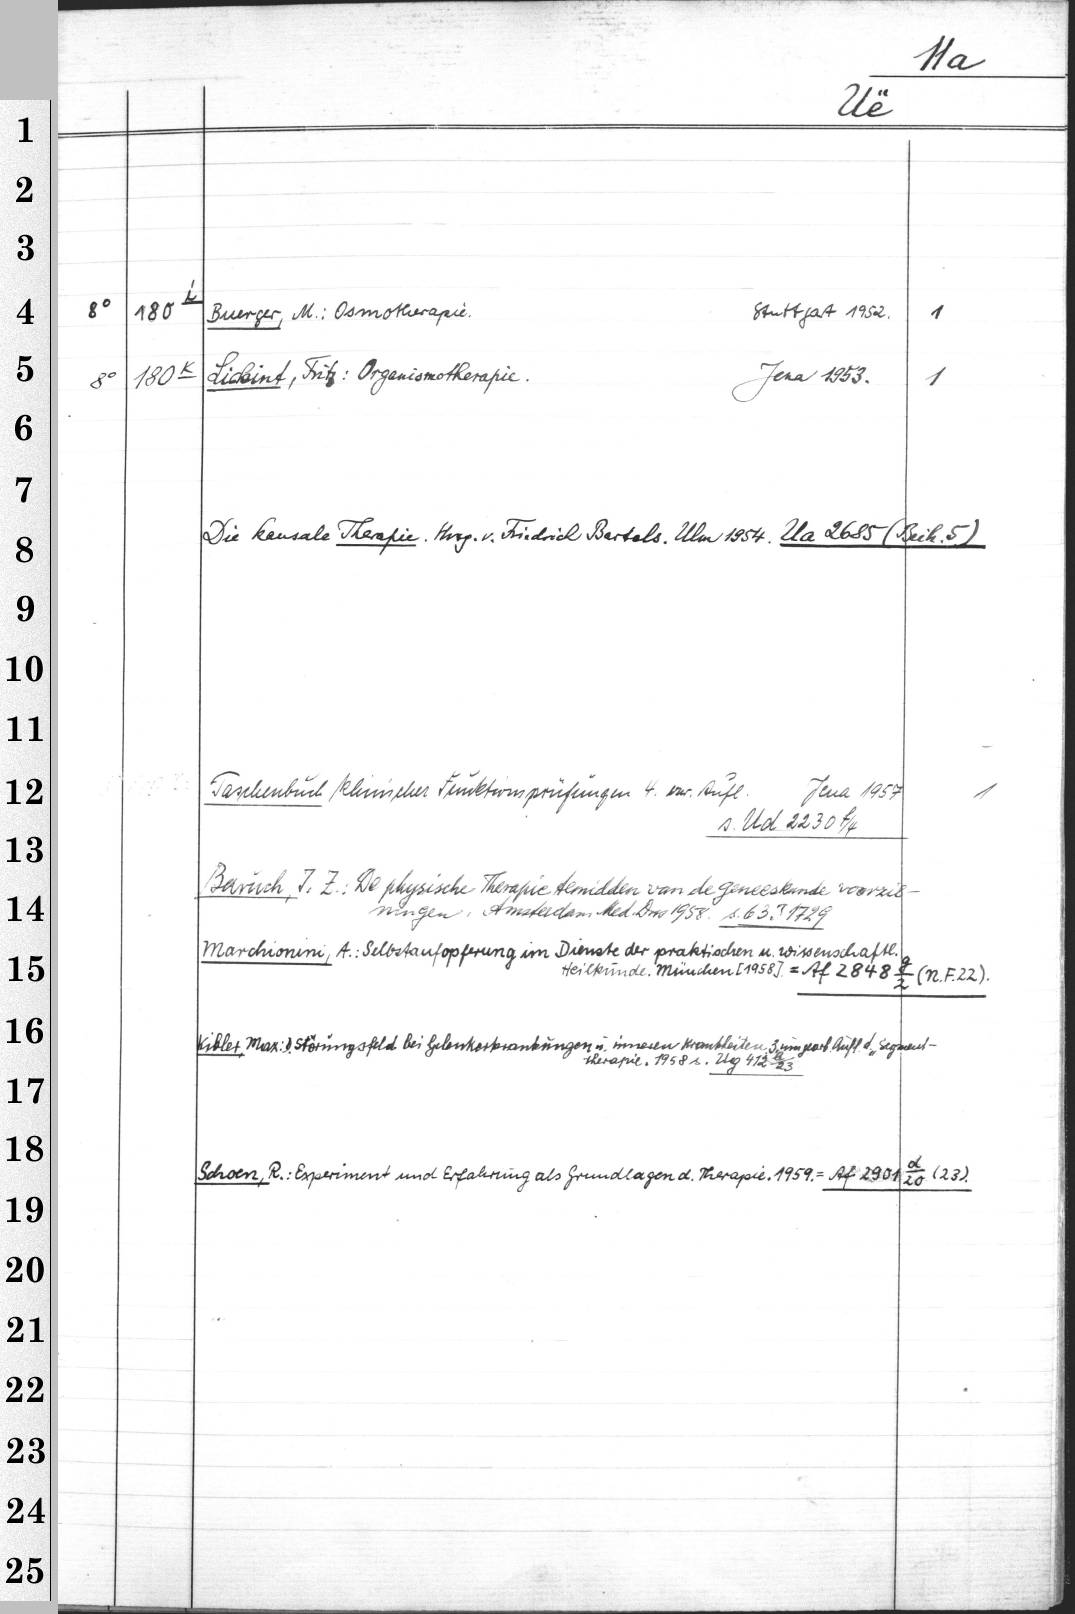 11a
Uë
1
2
3
4 8° 180 i Buerger, M.: Osmotherapie. Stuttgart 1952. 1
5 8° 180 K Lickint, Fritz: Organismotherapie. Jena 1953. 1
6
7
8 Die kausale Therapie. Hrsg. v. Friedrich Bartels. Ulm 1954. Ua 2685 (Beih. 5)
9
10
11
12 Taschenbuch klinischer Funktionsprüfungen 4. Aufl. Jena 1957 1
s. Ud 2230 f/4
13
Baruch, J. Z.: De physische Therapie temidden van de geneeskunde voorzie-
14 ningen. Amsterdam 1958. 1729
Marchionini, A.: Selbstaufopferung im Dienste der praktischen u. wissenschaftl.
15 Heilkunde. München [1958] = Af 2848 g/2 (N.F.22).
16
Kibler, Max: D. Störungsfeld bei Gelenkerkrankungen u. inneren Krankheiten. 3. umgearb. Aufl. d. "Segment-
therapie. 1958 s. Ug 412 a/23
17
18 Schoen, R.: Experiment und Erfahrung als Grundlagen d. Therapie. 1959. = Af 2901 d/20 (23).
19
20
21
22
23
24
25